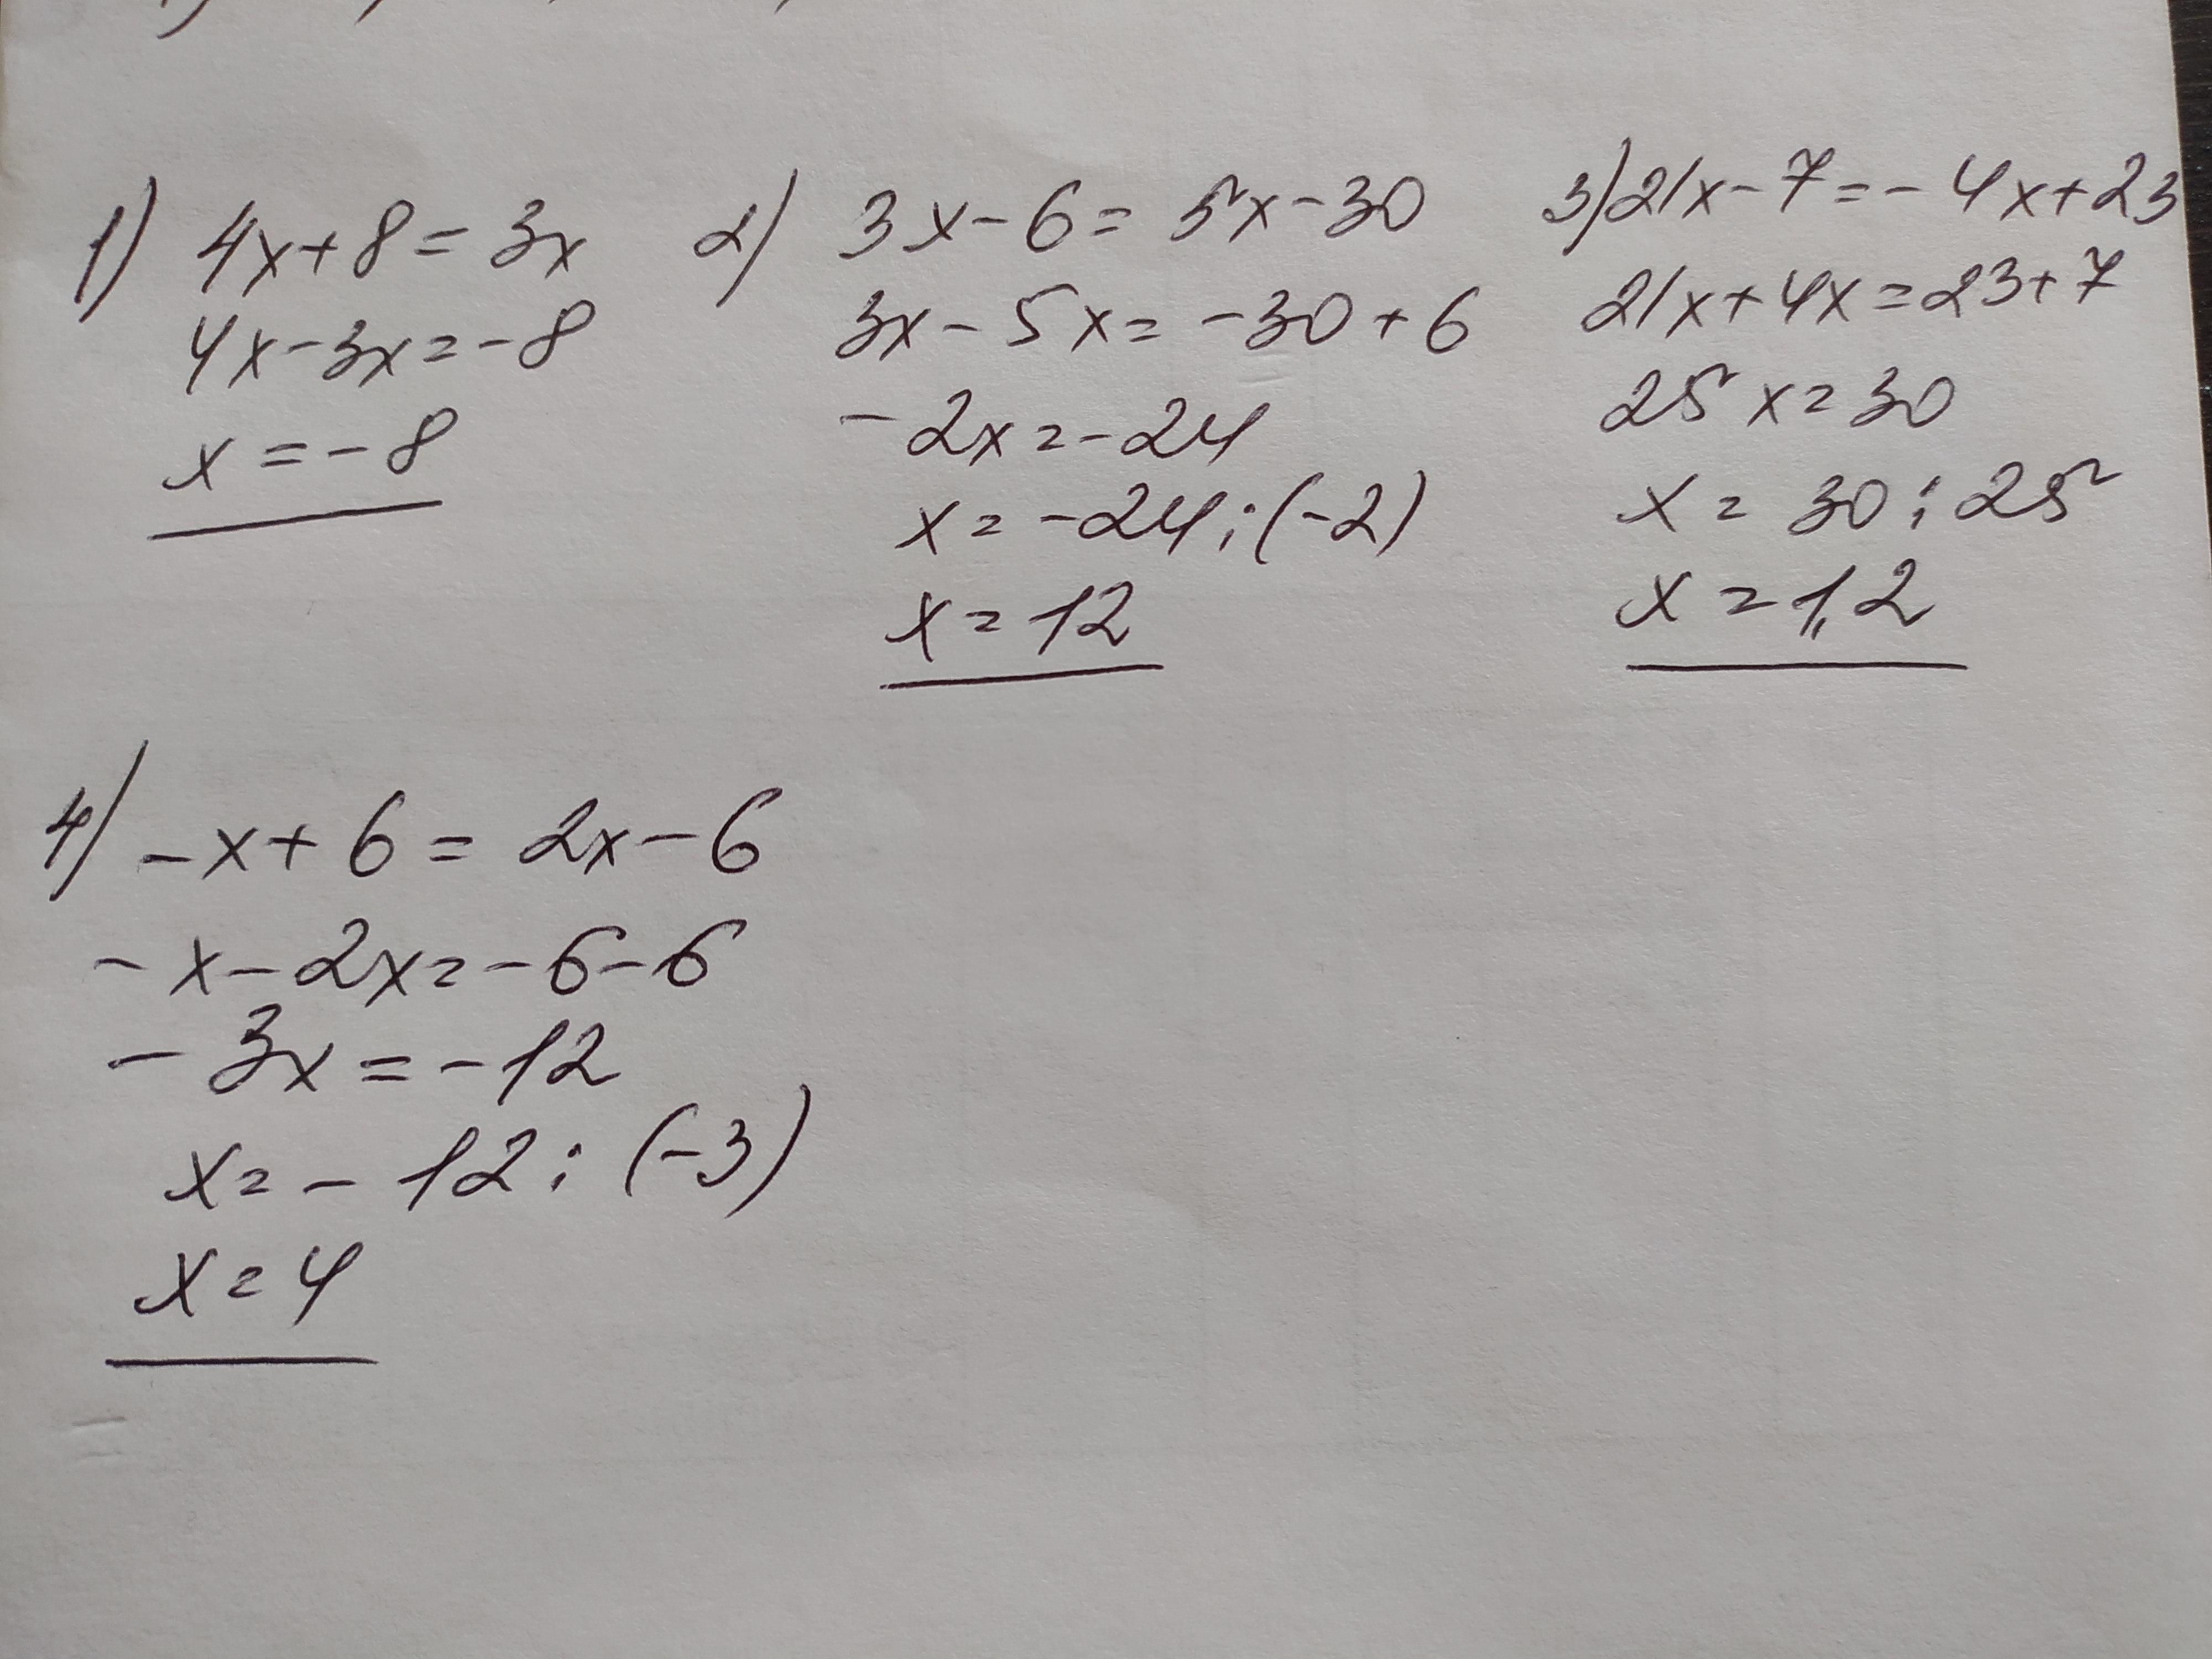 1) 4x+8=3x
4x-3x=-8
x=-8
2) 3x-6=5x-30
3x-5x=-30+6
-2x=-24
x=-24:(-2)
x=12
3) 21x-7=-4x+23
21x+4x=23+7
25x=30
x=30:25
x=1,2
4) -x+6=2x-6
-x-2x=-6-6
-3x=-12
x=-12:(-3)
x=4